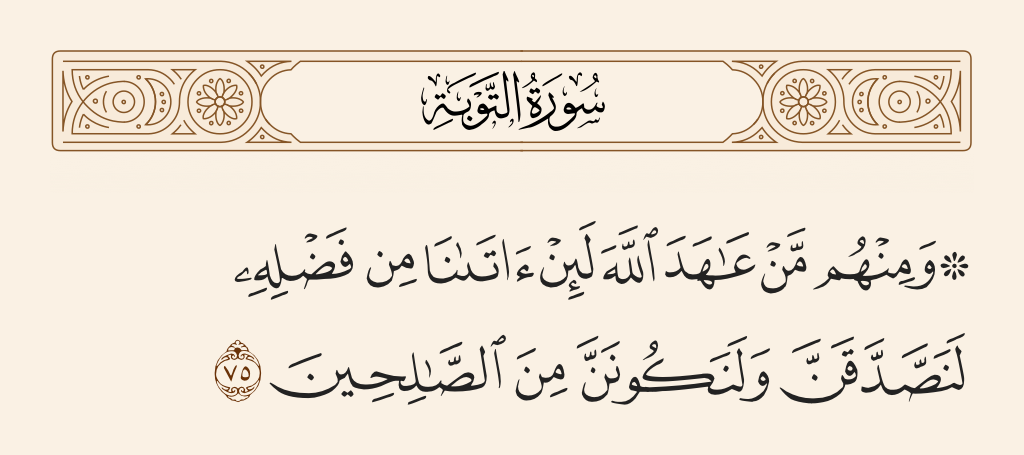 سُورَةُ التَّوْبَةِ
۞وَمِنْهُم مَّنْ عَٰهَدَ ٱللَّهَ لَئِنْ ءَاتَىٰنَا مِن فَضْلِهِۦ
لَنَصَّدَّقَنَّ وَلَنَكُونَنَّ مِنَ ٱلصَّٰلِحِينَ ٧٥